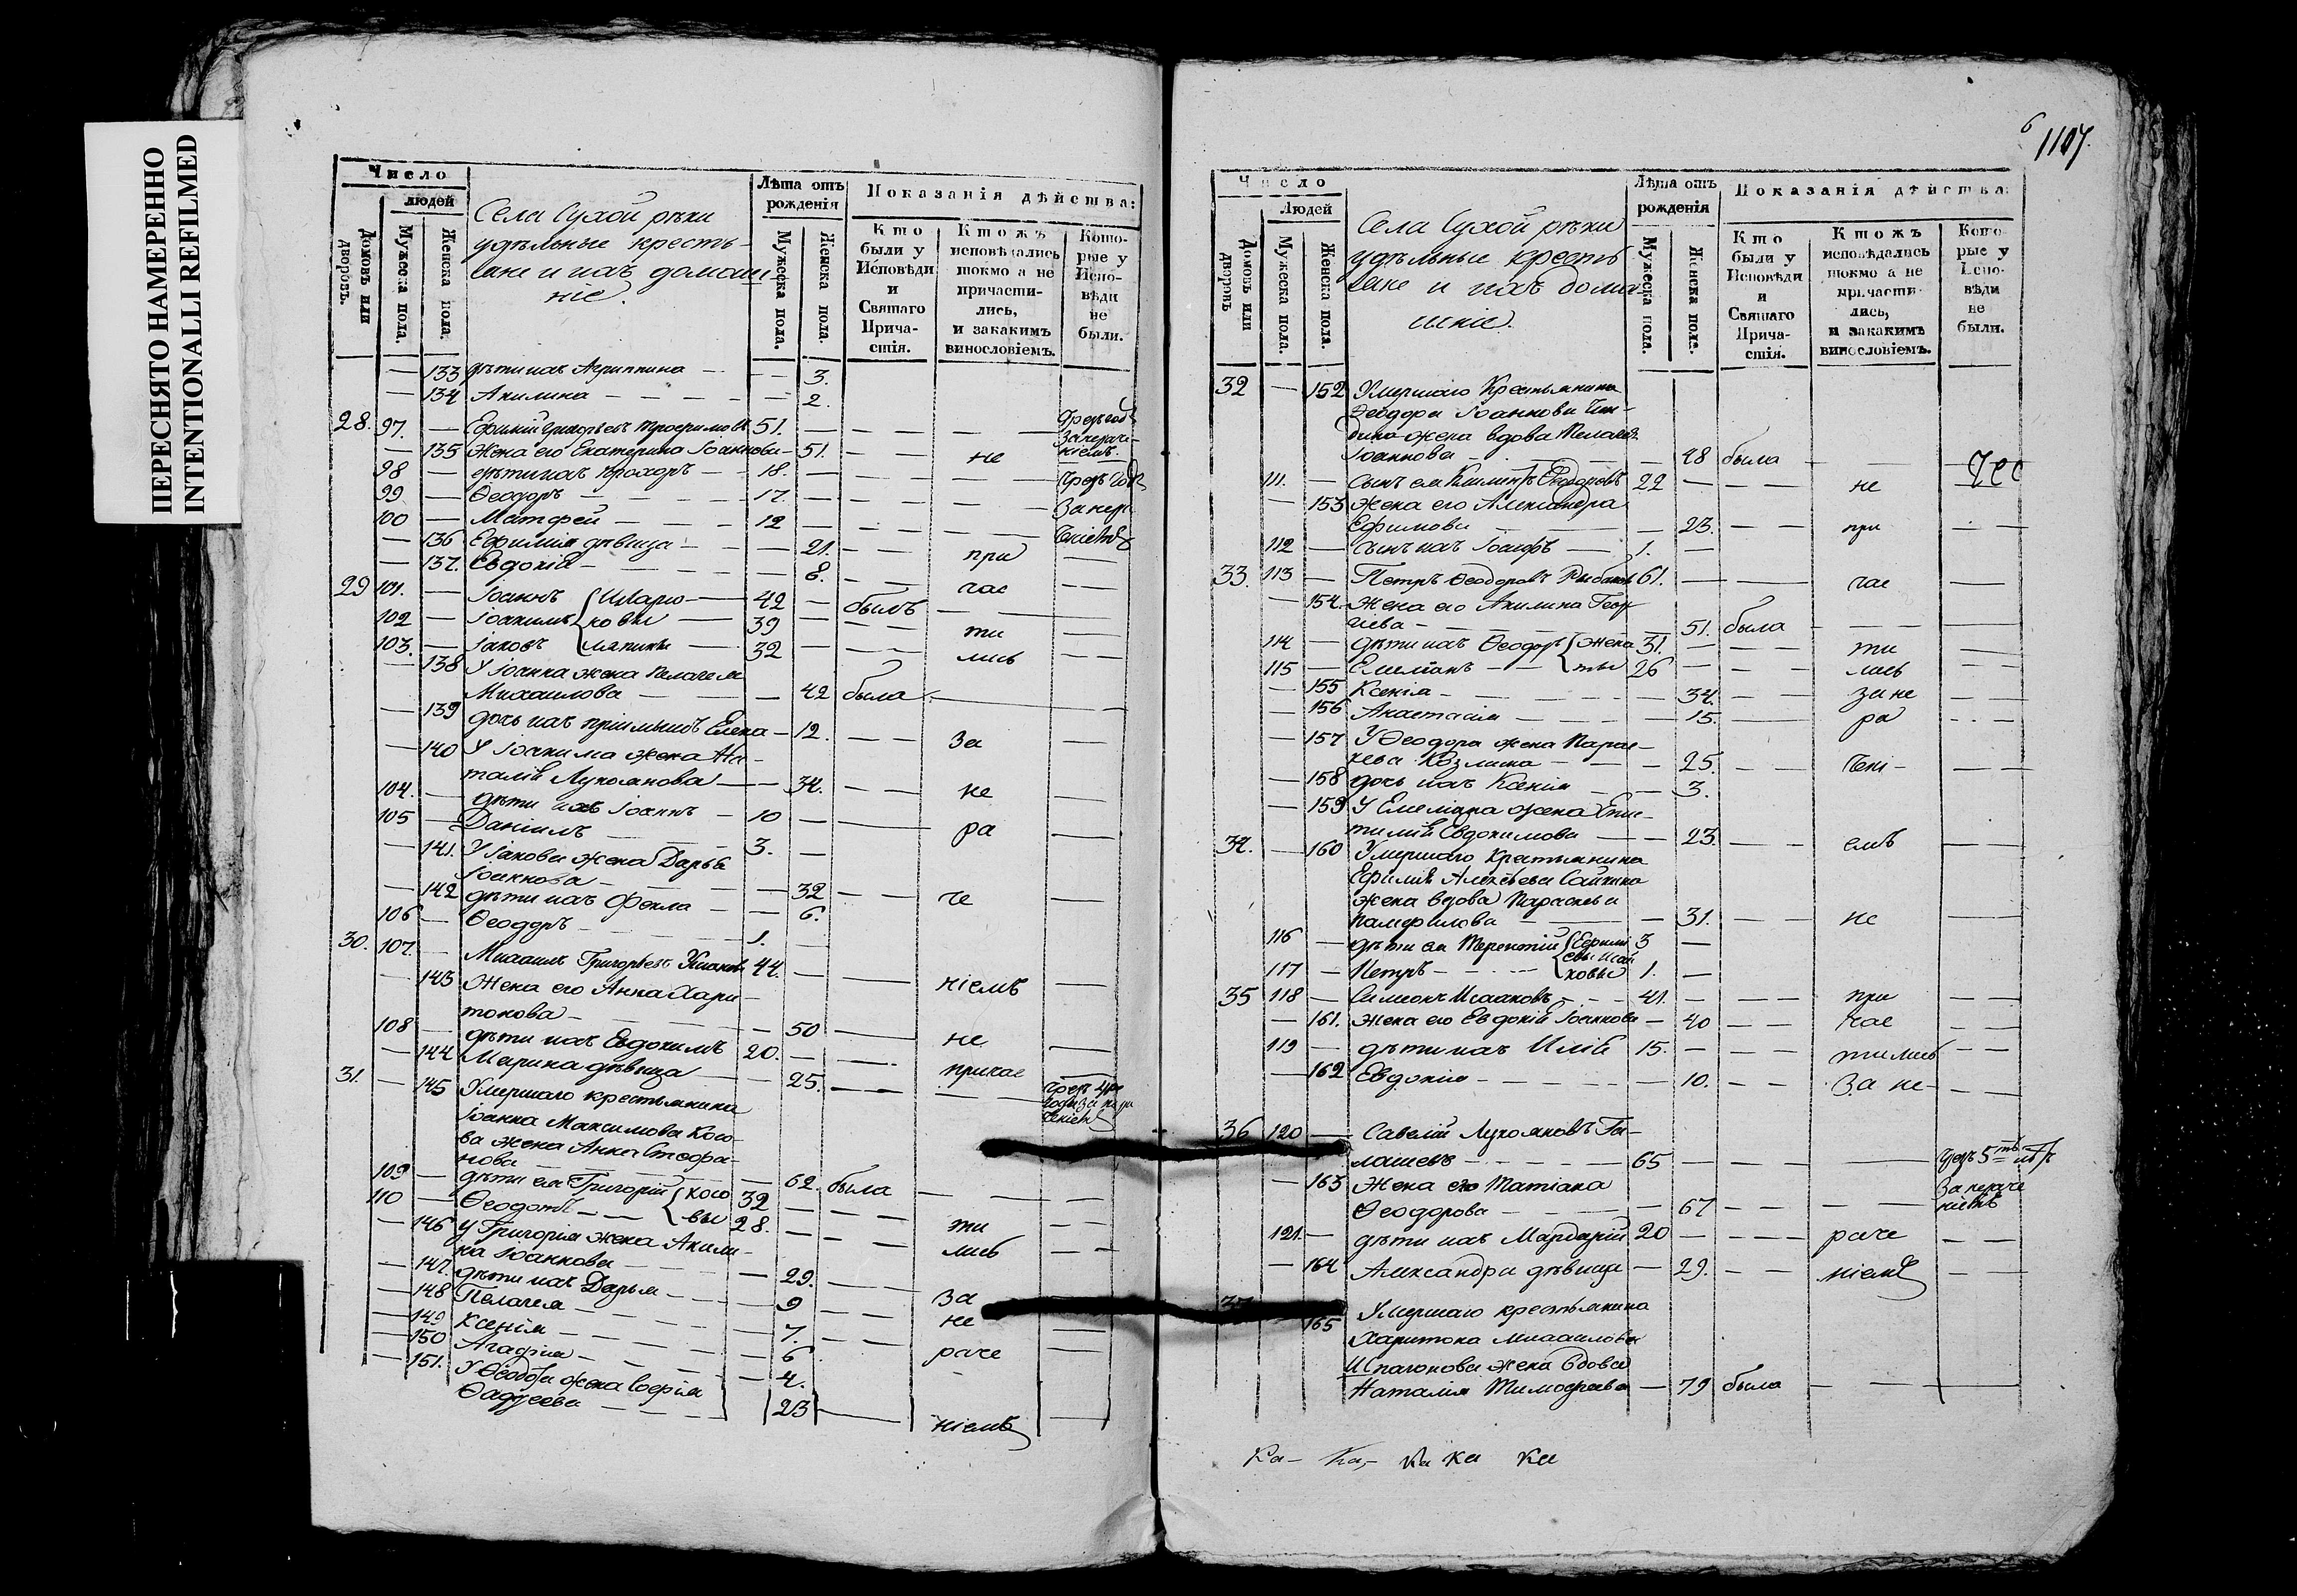 ПЕРЕСНЯТО НАМЕРЕННО
INTENTIONALLI REFILMED
Число
людей
Домовъ или дворовъ.
Мужеска пола.
Женска пола.
Села Сухой рѣки
удѣльные кресть-
яне и ихъ домаш
ніе.
Лѣта отъ рожденія
Мужеска пола.
Женска пола.
Показанія дѣйства:
Кто были у Исповѣди и Святаго Прича-стія.
Ктожъ исповѣдались токмо а не причасти-лись, и закакимъ винословіемъ.
Кото-рые у Испо-вѣди не были.
133 дѣти ихъ Агрипина 3.
134 Акилина 2.
28. 97. Григорьевъ 51.
135 Жена его Екатерина Іоаннова 51. не
98 дѣти ихъ Прохоръ 18.
99 Ѳеодоръ 17.
100 Матфей 12
136 Ефимія дѣвица 21. при
137. Евдокія 8.
29 101. Іоаннъ Иларіо 42 былъ час
102 Іоакимъ новы 39 ти
103. Іаковъ 32 лись
138 У Іоанна жена Пелагея
Михаилова 42 была
139 дочь ихъ пріимышъ Елена 12. за
140 У Іоакима жена На-
талія Лукоянова 34. не
104. дѣти ихъ Іоаннъ 10
105 Даніилъ 3. ра
141. У Іакова жена Дарья
Іоаннова 32
142 дѣти ихъ Фекла 6. че
106 Ѳеодоръ 1.
30. 107. Михаилъ Григорьевъ 44.
143 Жена его Анна Хари-
тонова 50 ніемъ
108 дѣти ихъ Евдокимъ 20. не
144 Марина дѣвица 25. причас
31. 145 Умершаго крестьянина
Іоанна Максимова Косо-
ва жена Анна Стефа-
нова 62. была
109 дѣти ея Григорій косо 32
110 Ѳеодотъ вы 28. ти
146 У Григорія жена Акили-
на Іоаннова 29. лись
147. дѣти ихъ Дарья 9 за
148 Пелагея 7. не
149 Ксенія 6 раче
150 Агафія 4.
151. У Ѳеодота жена Софія
Ѳаддеева 23 ніемъ
6
1107.
Число
Людей
Домовъ или дворовъ
Мужеска пола.
Женска пола.
Села Сухой рѣки
удѣльные кресть
яне и ихъ дома
шніе.
Лѣта отъ рожденія
Мужеска пола.
Женска пола.
Показанія дѣйства:
Кто были у Исповѣди и Святаго Прича-стія.
Ктожъ исповѣдались токмо а не причасти-лись, и закакимъ винословіемъ.
Кото-рые у Испо-вѣди не были.
32 152 Умершаго Крестьянина
Ѳеодора Іоаннова
жена вдова Пелагея
Іоаннова 48 была
111. Сынъ ея Климентъ Ѳеодоровъ 22 не
153 Жена его Александра
Ефимова 23. при
112 Сынъ ихъ Іосифъ 1.
33. 113 Петръ Ѳеодоровъ Рыбаковъ 61. час
154. Жена его Акилина Геор
гіева 51. была
114 дѣти ихъ Ѳеодоръ женa 31. ти
115 Емеліанъ ты 26 лись
155 Ксенія 34. за не
156 Анастасія 15. ра
157 У Ѳеодора жена Парас-
кева Козмина 25. чені-
158 дочь ихъ Ксенія 3.
159 У Емеліана жена
Евдокимова 23. емъ
34. 160 Умершаго Крестьянина
Ефимія Алексѣева
жена вдова Параскева
Памфилова 31. не
116 дѣти ея Терентій 3
117 Петръ 1.
35 118 Симеонъ Исааковъ 41. при
161. Жена его Евдокія Іоаннова 40 час
119 дѣти ихъ Илія 15. тились
162 Евдокія 10. за не-
36 120 Савелій Лукояновъ Га-
лашевъ 65
163 Жена его Татіана
Ѳеодорова 67
121. дѣти ихъ Мардарій 20 раче
164 Александра дѣвица 29. ніемъ
165 Умершаго крестьянина
Харитона Михаилова
жена вдова
Наталія Тимофеева 79 была
Ка- Ка,- Ка Ка Ка